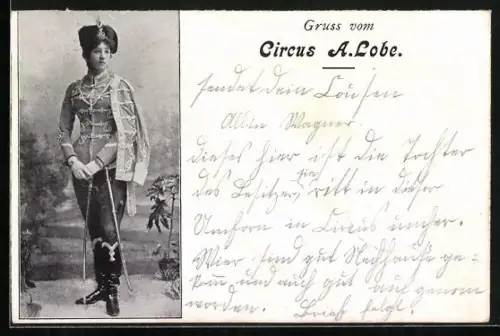 Gruss vom
Circus A. Lobe.
sendet dein Cousien
Albin Wagner.
dieses hier ist die Tochter
des Besitzers, sie ritt in dieser
Uniform in Circus umher.
Wier sind gut Nachhause ge-
kom und auch gut auf genom
worden. Brief folgt.